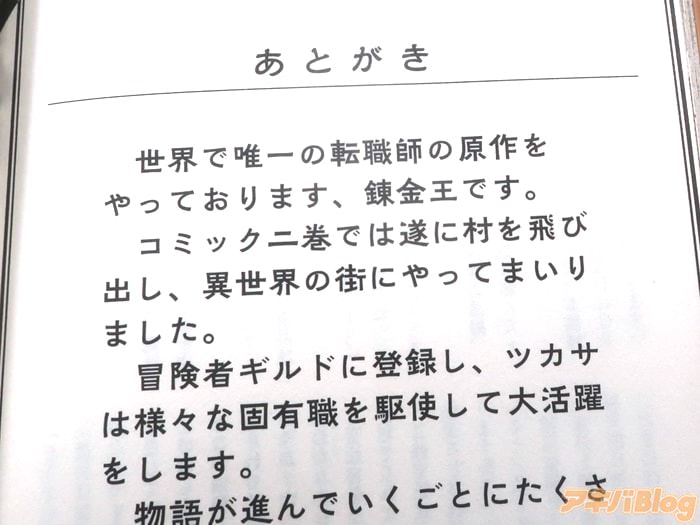 あとがき
世界で唯一の転職師の原作を
やっております、錬金王です。
コミック二巻では遂に村を飛び
出し、異世界の街にやってまいり
ました。
冒険者ギルドに登録し、ツカサ
は様々な固有職を駆使して大活躍
をします。
物語が進んでいくごとにたくさ
アキバBlog